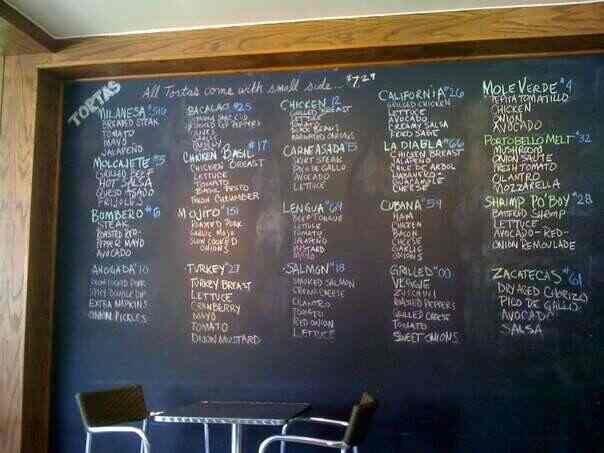 TORTAS
All Tortas come with small side... $7.29
MILANESA
BREADED STEAK
TOMATO
MAYO
JALAPEÑO
MOLCAJETE #5
GRILLED BEEF
HOT SALSA
QUESO AÑEJO
FRIJOLES
BOMBERO #6
STEAK
ROASTED RED-
PEPPER MAYO
AVOCADO
AHOGADA #10
EXTRA NAPKINS
ONION PICKLES
BACALAO #25
CHICKEN BASIL #17
CHICKEN BREAST
LETTUCE
TOMATO
BASIL PESTO
CUCUMBER
MOJITO #151
ROASTED PORK
GARLIC MOJO
SLOW COOKED
ONIONS
TURKEY #27
TURKEY BREAST
LETTUCE
CRANBERRY
MAYO
TOMATO
DIJON MUSTARD
CHICKEN 12
GRILLED
BREAST
BEANS
ONIONS
CARNE ASADA #15
SKIRT STEAK
PICO DE GALLO
AVOCADO
LETTUCE
LENGUA #64
BEEF TONGUE
LETTUCE
TOMATO
JALAPEÑO
MUSTARD
MAYO
SALMON #18
SMOKED SALMON
CREAM CHEESE
CILANTRO
TOMATO
RED ONION
LETTUCE
CALIFORNIA #26
GRILLED CHICKEN
LETTUCE
AVOCADO
CREAM SALSA
FRIED SAGE
LA DIABLA #666
CHICKEN BREAST
JALAPEÑO
CHILE DE ARBOL
HABANERO
CHIPOTLE
CHEESE
CUBANA #54
HAM
CHICKEN
CHEESE
ONIONS
GRILLED #00
VEGGIE
ZUCCHINI
ROASTED PEPPERS
GRILLED CHEESE
TOMATO
SWEET ONIONS
MOLE VERDE #4
PEPITA TOMATILLO
CHICKEN
ONION
AVOCADO
PORTOBELLO MELT #32
MUSHROOM
ONION SAUTE
FRESH TOMATO
CILANTRO
MOZZARELLA
SHRIMP PO'BOY #28
BATTERED SHRIMP
LETTUCE
AVOCADO-RED-
ONION REMOULADE
ZACATECAS #61
DRY AGED CHORIZO
PICO DE GALLO
AVOCADO
SALSA